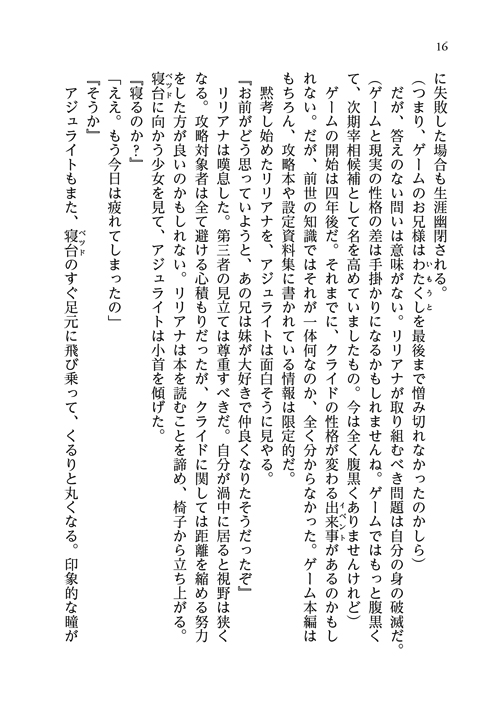 16
に失敗した場合も生涯幽閉される。
（つまり、ゲームのお兄様はわたくしを最後まで憎み切れなかったのかしら）
いもうと
だが、答えのない問いは意味がない。リリアナが取り組むべき問題は自分の身の破滅だ。
（ゲームと現実の性格の差は手掛かりになるかもしれませんね。ゲームではもっと腹黒く
て、次期宰相候補として名を高めていましたもの。今は全く腹黒くありませんけれど）
ゲームの開始は四年後だ。それまでに、クライドの性格が変わる出来事があるのかもし
イベント
れない。だが、前世の知識ではそれが一体何なのか、全く分からなかった。ゲーム本編は
もちろん、攻略本や設定資料集に書かれている情報は限定的だ。
黙考し始めたリリアナを、アジュライトは面白そうに見やる。
『お前がどう思っていようと、あの兄は妹が大好きで仲良くなりたそうだったぞ』
リリアナは嘆息した。第三者の見立ては尊重すべきだ。自分が渦中に居ると視野は狭く
なる。攻略対象者は全て避ける心積もりだったが、クライドに関しては距離を縮める努力
をした方が良いのかもしれない。リリアナは本を読むことを諦め、椅子から立ち上がる。
寝台に向かう少女を見て、アジュライトは小首を傾げた。
ベッド
『寝るのか？』
「ええ。もう今日は疲れてしまったの」
『そうか』
アジュライトもまた、寝台のすぐ足元に飛び乗って、くるりと丸くなる。印象的な瞳が
ベッド